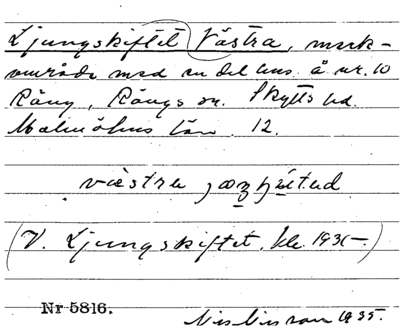 Ljungskiftet Västra, mark-
område med en del hus å nr. 10
Räng, Rängs sn. Skytts hd.
Malmöhus län. 12.
västra
(V. Ljungskiftet, kl. 1935–)
Nr 5816.
Nils Nilsson 1935.